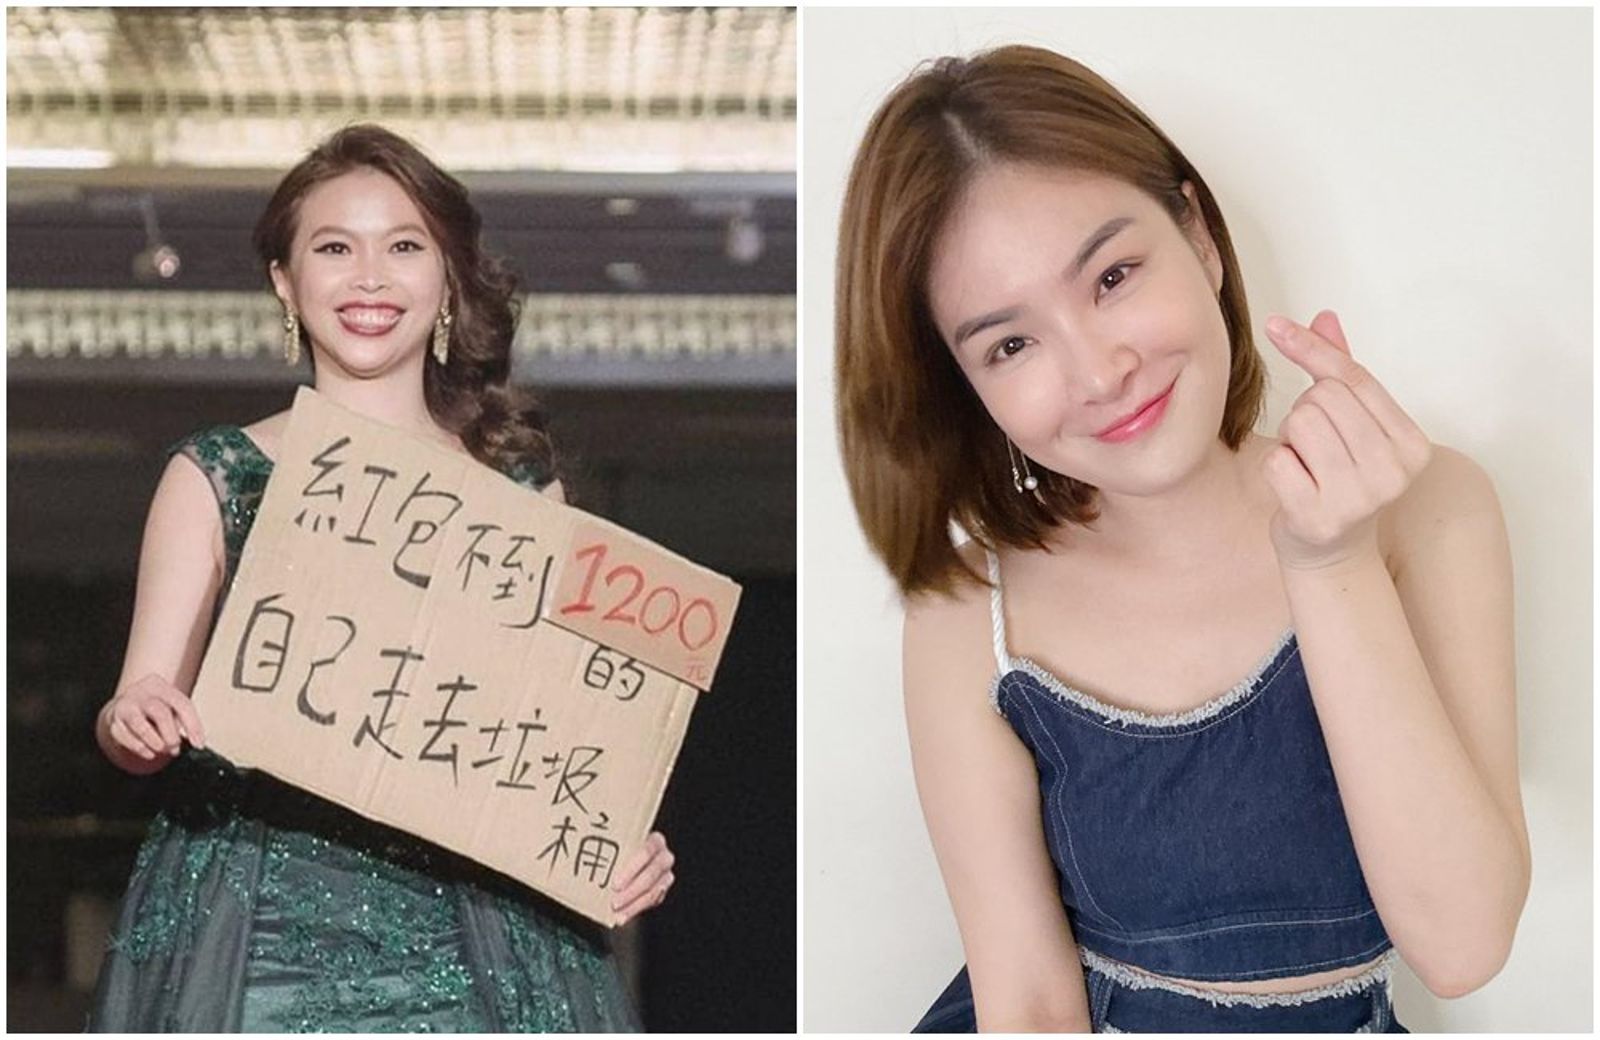 紅包不到1200元
的
自己走去垃圾
桶